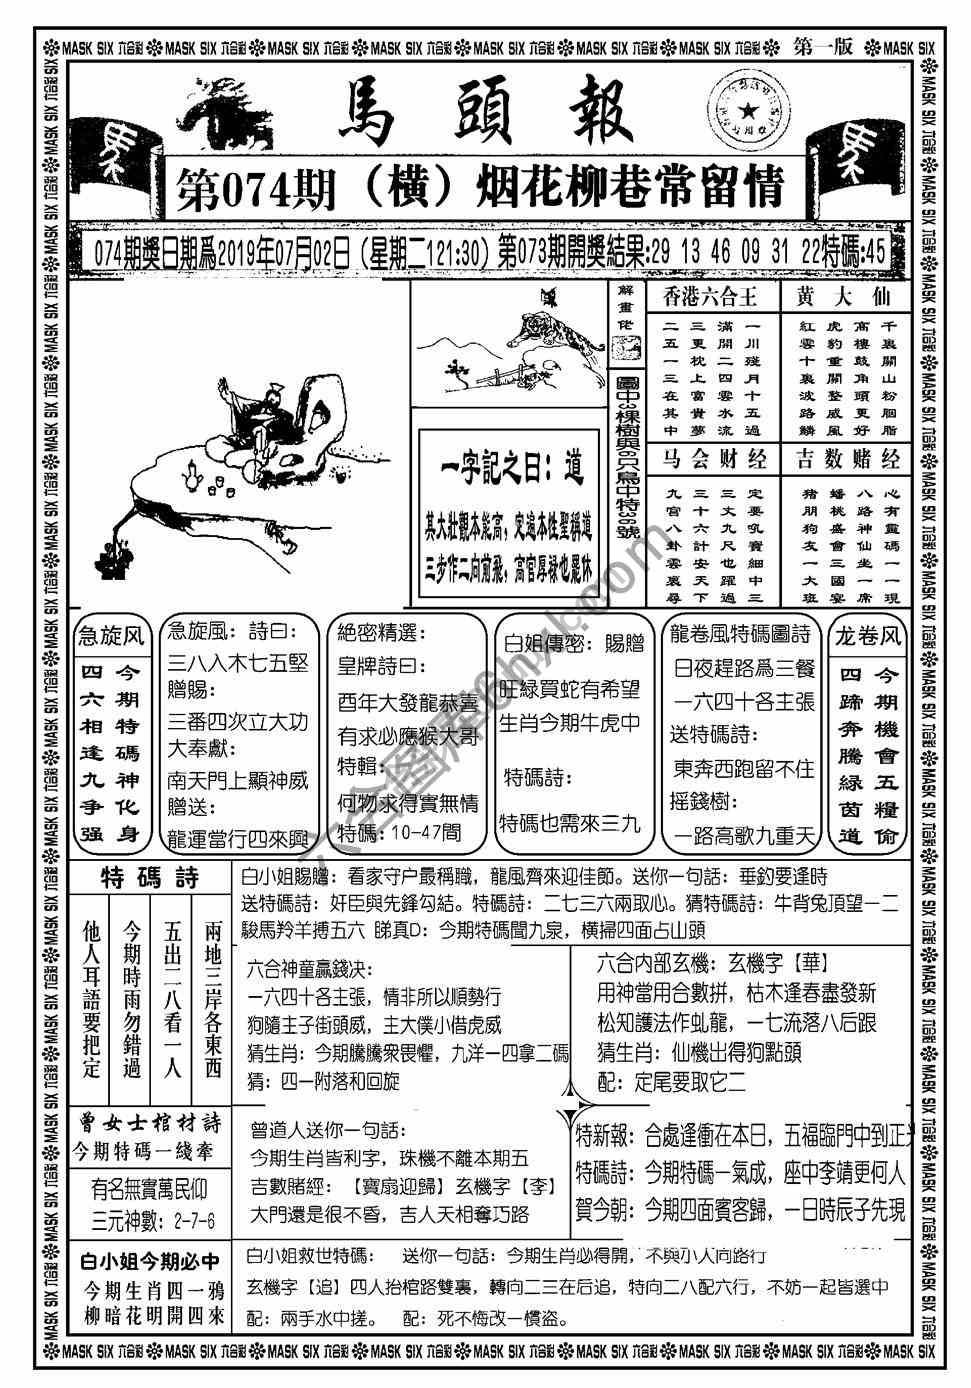 MASK SIX 六合彩 MASK SIX 六合彩 MASK SIX 六合彩 MASK SIX 六合彩 MASK SIX 六合彩 MASK SIX 六合彩 MASK SIX 六合彩 第一版 MASK SIX
馬頭報
第074期（橫）烟花柳巷常留情
074期獎日期爲2019年07月02日（星期二121:30）第073期開獎結果:29 13 46 09 31 22特碼:45
解畫佬
圖中3棵樹與6只鳥中特36號
一字記之曰：道
其大壯觀本能高，定遍本性聖稱道
三步作二向前飛，高官厚禄也罷休
香港六合王
一川殘月十五過
滿開二四雲水流
三更枕上富貴夢
二五一三在其中
黄大仙
千裏關山粉胭脂
高樓鼓角頭更好
虎豹重關整威風
紅雲十裏波路鱗
马会财经
定要吼寶細中三
三丈九尺也躍過
三十六計安天下
九宫八卦雲裏尋
吉数赌经
心有靈碼一一現
八路神仙坐一席
蟠桃盛會三國宴
豬朋狗友一大班
急旋风
今期特碼神化身
四六相逢九争强
急旋風：詩曰：
三八入木七五堅
贈賜：
三番四次立大功
大奉獻：
南天門上顯神威
贈送：
龍運當行四來興
絶密精選：
皇牌詩曰：
酉年大發龍恭喜
有求必應猴大哥
特輯：
何物求得實無情
特碼：10-47間
白姐傳密：賜贈
旺緑買蛇有希望
生肖今期牛虎中
特碼詩：
特碼也需來三九
龍卷風特碼圖詩
日夜趕路爲三餐
一六四十各主張
送特碼詩：
東奔西跑留不住
摇錢樹：
一路高歌九重天
龙卷风
今期機會五糧偷
四蹄奔騰緑茵道
特碼詩
兩地三岸各東西
五出二八看一人
今期時雨勿錯過
他人耳語要把定
白小姐賜贈：看家守户最稱職，龍風齊來迎佳節。送你一句話：垂釣要逢時
送特碼詩：奸臣與先鋒勾結。特碼詩：二七三六兩取心。猜特碼詩：牛背兔頂望一二
駿馬羚羊搏五六 睇真D：今期特碼闖九泉，横掃四面占山頭
六合神童贏錢决：
一六四十各主張，情非所以順勢行
狗隨主子街頭威，主大僕小借虎威
猜生肖：今期騰騰衆畏懼，九洋一四拿二碼
猜：四一附落和回旋
六合内部玄機：玄機字【華】
用神當用合數拼，枯木逢春盡發新
松知護法作虬龍，一七流落八后跟
猜生肖：仙機出得狗點頭
配：定尾要取它二
曾女士棺材詩
今期特碼一綫牽
有名無實萬民仰
三元神數：2-7-6
曾道人送你一句話：
今期生肖皆利字，珠機不離本期五
吉數賭經：【寶扇迎歸】玄機字【李】
大門還是很不昏，吉人天相奪巧路
特新報：合處逢衝在本日，五福臨門中到正
特碼詩：今期特碼一氣成，座中李靖更何人
賀今朝：今期四面賓客歸，一日時辰子先現
白小姐今期必中
今期生肖四一鴉
柳暗花明開四來
白小姐救世特碼： 送你一句話：今期生肖必得開，不與小人向路行
玄機字【追】四人抬棺路雙裏，轉向二三在后追，特向二八配六行，不妨一起皆選中
配：兩手水中搓。 配：死不悔改一慣盗。
MASK SIX 六合彩 MASK SIX 六合彩 MASK SIX 六合彩 MASK SIX 六合彩 MASK SIX 六合彩 MASK SIX 六合彩 MASK SIX 六合彩 MASK SIX 六合彩 MASK SIX